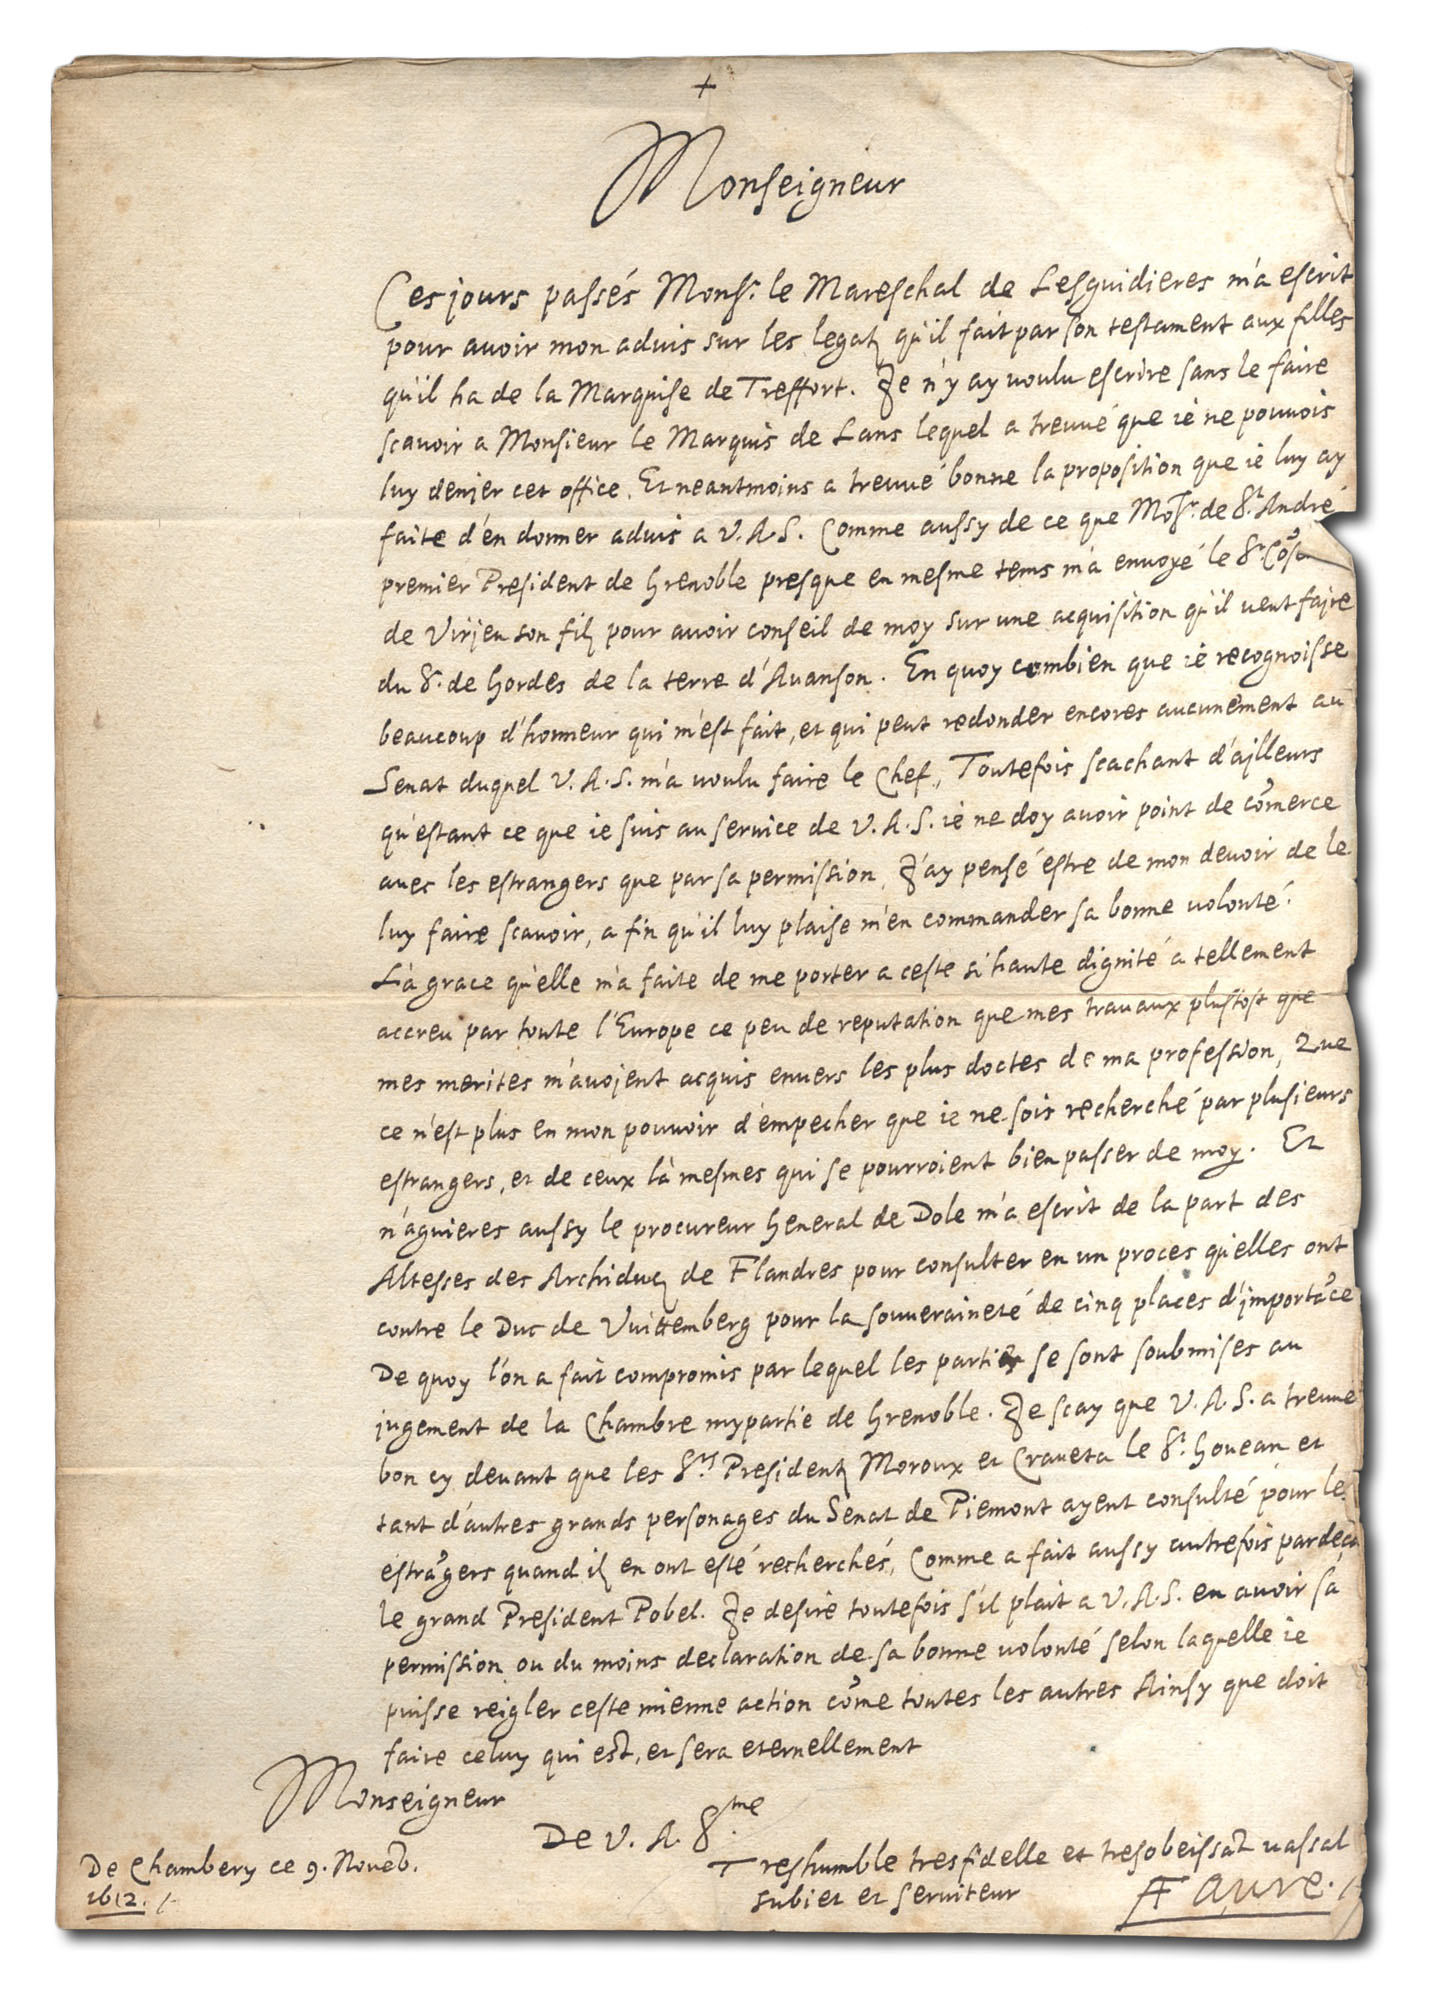 +
Monseigneur
Ces jours passés Monsr. le Mareschal de Lesguidieres m'a escrit
pour avoir mon advis sur les legatz qu'il fait par son testament aux filles
qu'il ha de la Marquise de Treffort. Je n'y ay voulu escrire sans le faire
scavoir a Monsieur le Marquis de Lans lequel a treuvé que ie ne pouvois
luy denier cet office. Et neantmoins a treuvé bonne la proposition que ie luy ay
faite d'en donner advis a V.A.S. Comme aussy de ce que Mosr. de St. André
premier President de Grenoble presque en mesme tems m'a envoyé le Sr.
de Virjen son filz pour avoir conseil de moy sur une acquisition qu'il veut faire
du Sr. de Gordes de la terre d'Avanson. En quoy combien que ie recognoisse
beaucoup d'honneur qui m'est fait, et qui peut redonder encores aucunement au
Senat duquel V.A.S. m'a voulu faire le Chef, Toutefois scachant d'ailleurs
qu'estant ce que ie suis au service de V.A.S. ie ne doy avoir point de cõmerce
avec les estrangers que par sa permission, J'ay pensé estre de mon devoir de le
luy faire scavoir, a fin qu'il luy plaise m'en commander sa bonne volonté.
La grace qu'elle m'a faite de me porter a ceste si haute dignité a tellement
accreu par toute l'Europe ce peu de reputation que mes travaux plustost que
mes merites m'avojent acquis envers les plus doctes de ma profession, Que
ce n'est plus en mon pouvoir d'empecher que ie ne sois recherché par plusieurs
estrangers, et de ceux là mesmes qui se pourroient bien passer de moy. Et
n'aguieres aussy le procureur General de Dole m'a escrit de la part des
Altesses des Archiducz de Flandres pour consulter en un proces qu'elles ont
contre le Duc de Vvittemberg pour la souveraineté de cinq places d'importãce
De quoy l'on a fait compromis par lequel les parties se sont soubmises au
jugement de la Chambre mypartie de Grenoble. Je scay que V.A.S. a treuvé
bon cy devant que les Srs. Presidentz Moroux et Craveta le Sr. Govean et
tant d'autres grands personages du Senat de Piemont ayent consulté pour les
estrãgers quand ilz en ont esté recherchés, Comme a fait aussy autrefois pardeça
le grand President Pobel. Je desire toutefois s'il plait a V.A.S. en avoir sa
permission ou du moins declaration de sa bonne volonté selon laquelle ie
puisse reigler ceste mienne action cõme toutes les autres Ainsy que doit
faire celuy qui est, et sera eternellement
Monseigneur
De V. A. Sme.
Treshumble tresfidelle et tresobeissãt vassal
subiet et serviteur
AFavre.
De Chambery ce 9. Novẽb.
1612.